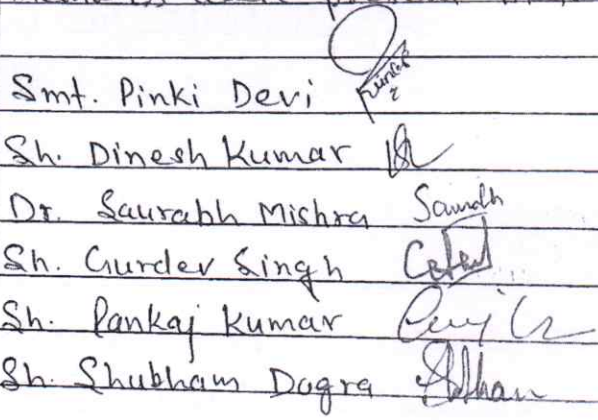 Smt. Pinki Devi
Sh. Dinesh Kumar
Dr. Saurabh Mishra Saurabh
Sh. Gurdev Singh
Sh. Pankaj Kumar
Sh. Shubham Dogra